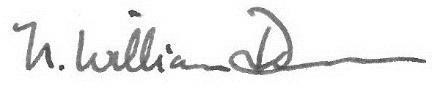 N. William D